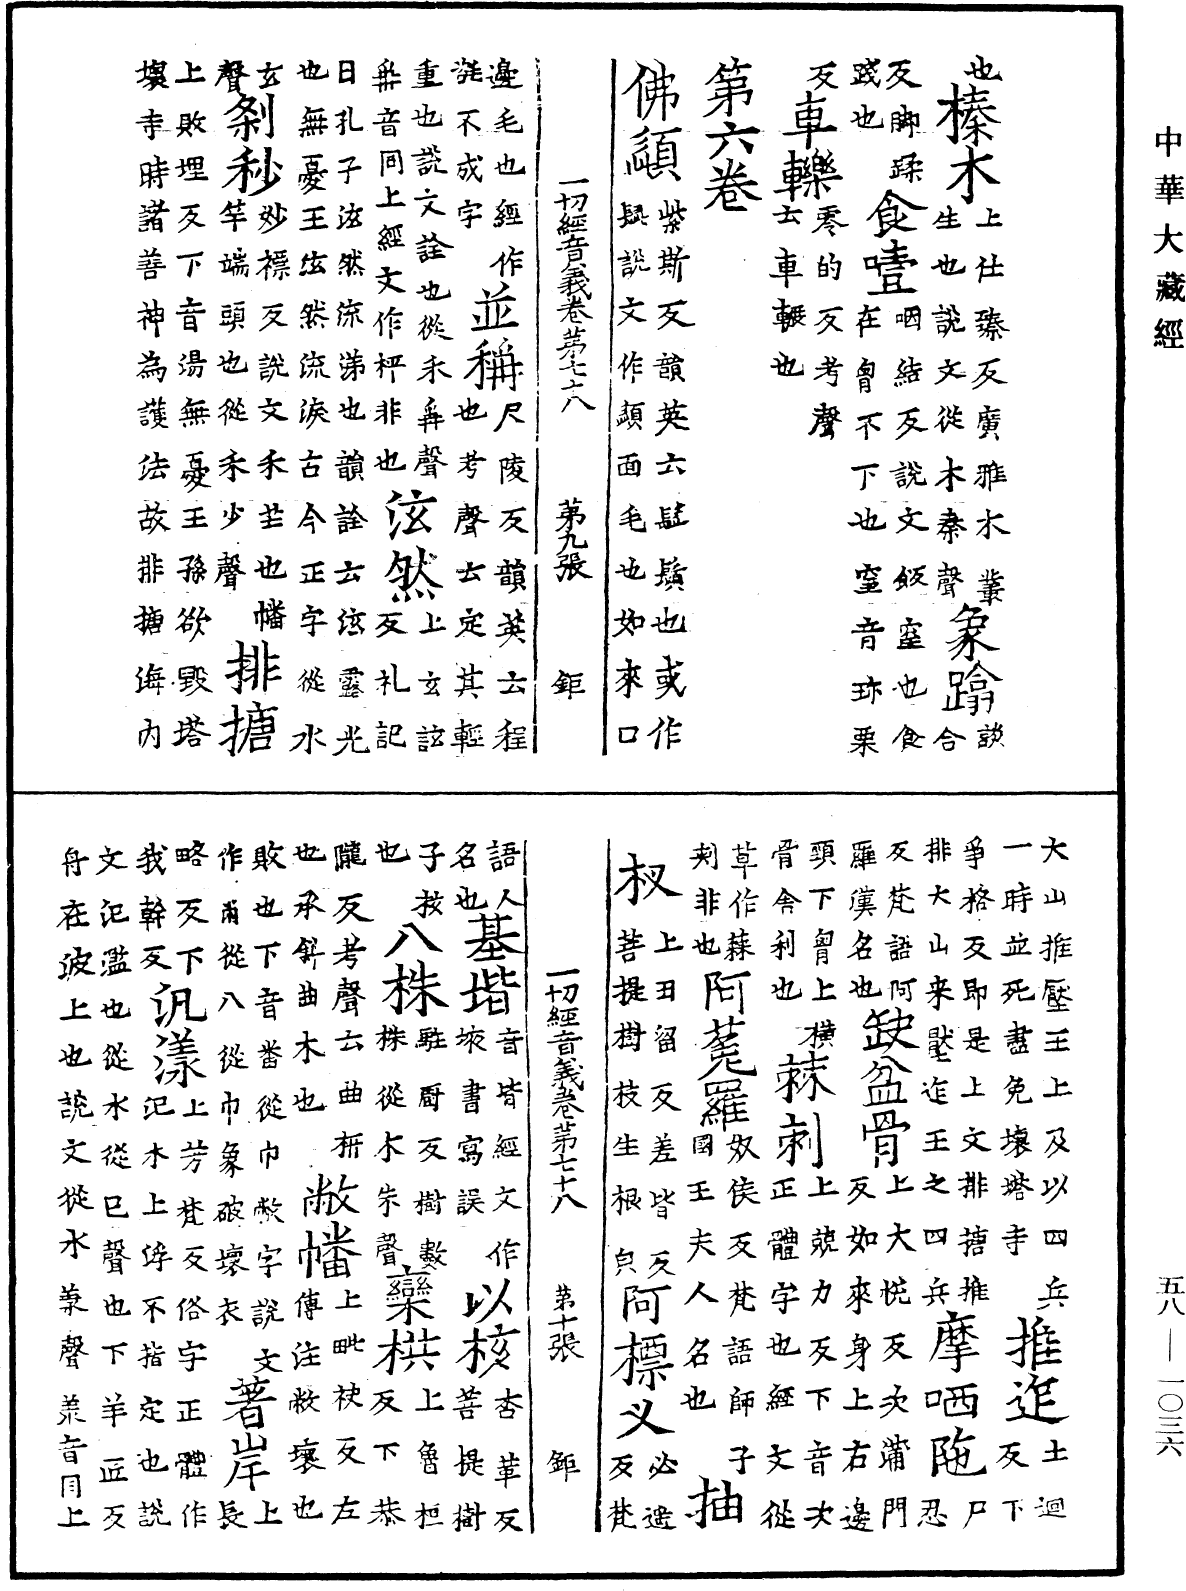 也榛木上仕臻反廣雅木叢生也說文從木秦聲象蹹談合
反脚蹂踐也食噎咽結反說文飯窒也食在胷不下也窒音珎栗
反車轢零的反考聲云車輾也
第六卷
佛䫇紫斯反韻英云髭鬚也或作髭說文作頾面毛也如來口
一切經音義卷第七十八 第九張 鉅
邊毛也經作不成字並稱尺陵反韻英云程也考聲云定其輕
重也說文詮也從禾爯聲爯音同上經文作枰非也泫然上玄詃反礼記
日孔子泫然流涕也韻詮云泫露光也無憂王泫然流淚古今正字從水
玄聲剎秒妙褾反說文禾芒也幡竿端頭也從禾少聲排搪
上敗埋反下音湯無憂王孫欲毀塔壞寺時諸善神為護法故排搪海內
大山推壓王上及以四兵一時並死盡免壞塔寺推迮土迴反下
爭格反即是上文排搪推排大山来壓迮王之四兵摩呬陁尸忍
反梵語阿羅漢名也缺盆骨上犬悅反次蒲門反如來身上右邊
頸下胷上橫骨舍利也棘刺上兢力反下音次正體字也經文從
草作蕀刾非也阿蒬羅奴侯反梵語師子國王夫人名也抽
杈上丑留反差皆反菩提樹枝生根㒵阿標叉必遥反梵
一切經音義卷第七十八 第十張 鉅
語人名也基堦音皆經文作垓書寫誤以核杏革反菩提樹
子核也八株駐厨反樹數株從木朱聲欒栱上魯桓反下恭
隴反考聲云曲枅也承枓曲木也敝幡上毗袂反左傳注敝壞也
敗也下音番從巾敝字說文作㡀從八從巾象破壞衣著岸上長
略反下我幹反汎漾上芳梵反俗字正體作汜木上浮不指定也說
文汜濫也從水從巳聲也下羊匠反舟在波上也說文從水羕聲羕音同上
中華大藏經
五八—一〇三六